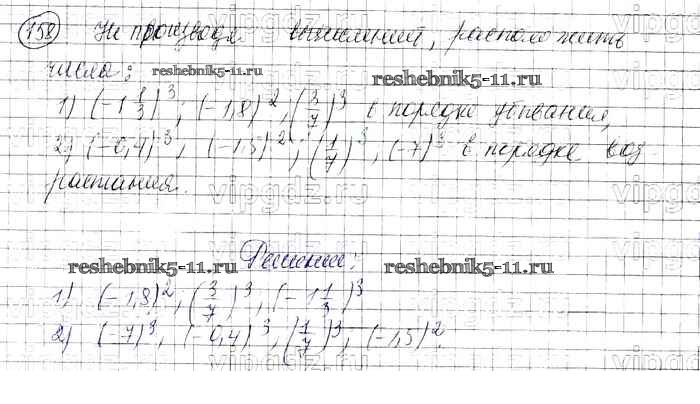 158 Не производя вычислений, расположить
числа: reshebnik5-11.ru reshebnik5-11.ru
1) (-1 1/3)³; (-1,8)²; (3/7)³ в порядке убывания,
2) (-0,4)³; (-1,5)²; (1/7)³, (-7)³ в порядке воз-
растания.
vipgdz.ru
Решение:
reshebnik5-11.ru reshebnik5-11.ru
1) (-1,8)²; (3/7)³, (-1 1/3)³
2) (-7)³, (-0,4)³, (1/7)³, (-1,5)².